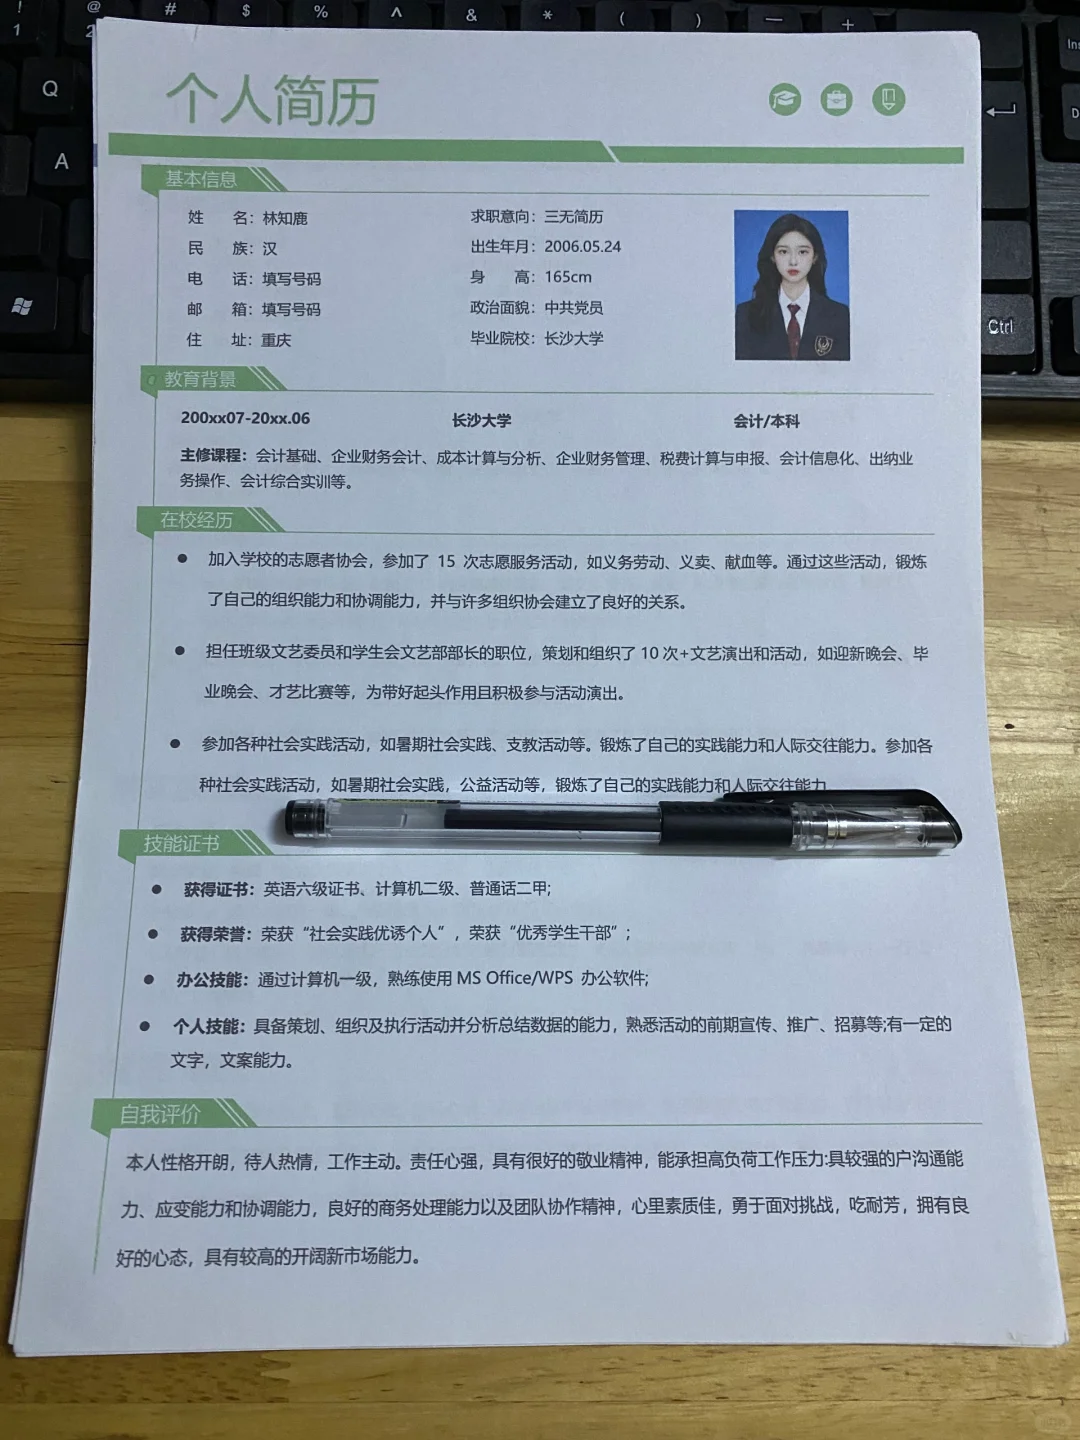 ! @ # $ % ^ & * ( ) — +
1 2
Q
A
Ctrl
个人简历
基本信息
姓 名：林知鹿 求职意向：三无简历
民 族：汉 出生年月：2006.05.24
电 话：填写号码 身 高：165cm
邮 箱：填写号码 政治面貌：中共党员
住 址：重庆 毕业院校：长沙大学
教育背景
200xx07-20xx.06 长沙大学 会计/本科
主修课程：会计基础、企业财务会计、成本计算与分析、企业财务管理、税费计算与申报、会计信息化、出纳业
务操作、会计综合实训等。
在校经历
● 加入学校的志愿者协会，参加了 15 次志愿服务活动，如义务劳动、义卖、献血等。通过这些活动，锻炼
了自己的组织能力和协调能力，并与许多组织协会建立了良好的关系。
● 担任班级文艺委员和学生会文艺部部长的职位，策划和组织了 10 次+文艺演出和活动，如迎新晚会、毕
业晚会、才艺比赛等，为带好起头作用且积极参与活动演出。
● 参加各种社会实践活动，如暑期社会实践、支教活动等。锻炼了自己的实践能力和人际交往能力。参加各
种社会实践活动，如暑期社会实践，公益活动等，锻炼了自己的实践能力和人际交往能力
技能证书
● 获得证书：英语六级证书、计算机二级、普通话二甲;
● 获得荣誉：荣获“社会实践优诱个人”，荣获“优秀学生干部”;
● 办公技能：通过计算机一级，熟练使用 MS Office/WPS 办公软件;
● 个人技能：具备策划、组织及执行活动并分析总结数据的能力，熟悉活动的前期宣传、推广、招募等;有一定的
文字，文案能力。
自我评价
本人性格开朗，待人热情，工作主动。责任心强，具有很好的敬业精神，能承担高负荷工作压力:具较强的户沟通能
力、应变能力和协调能力，良好的商务处理能力以及团队协作精神，心里素质佳，勇于面对挑战，吃耐芳，拥有良
好的心态，具有较高的开阔新市场能力。